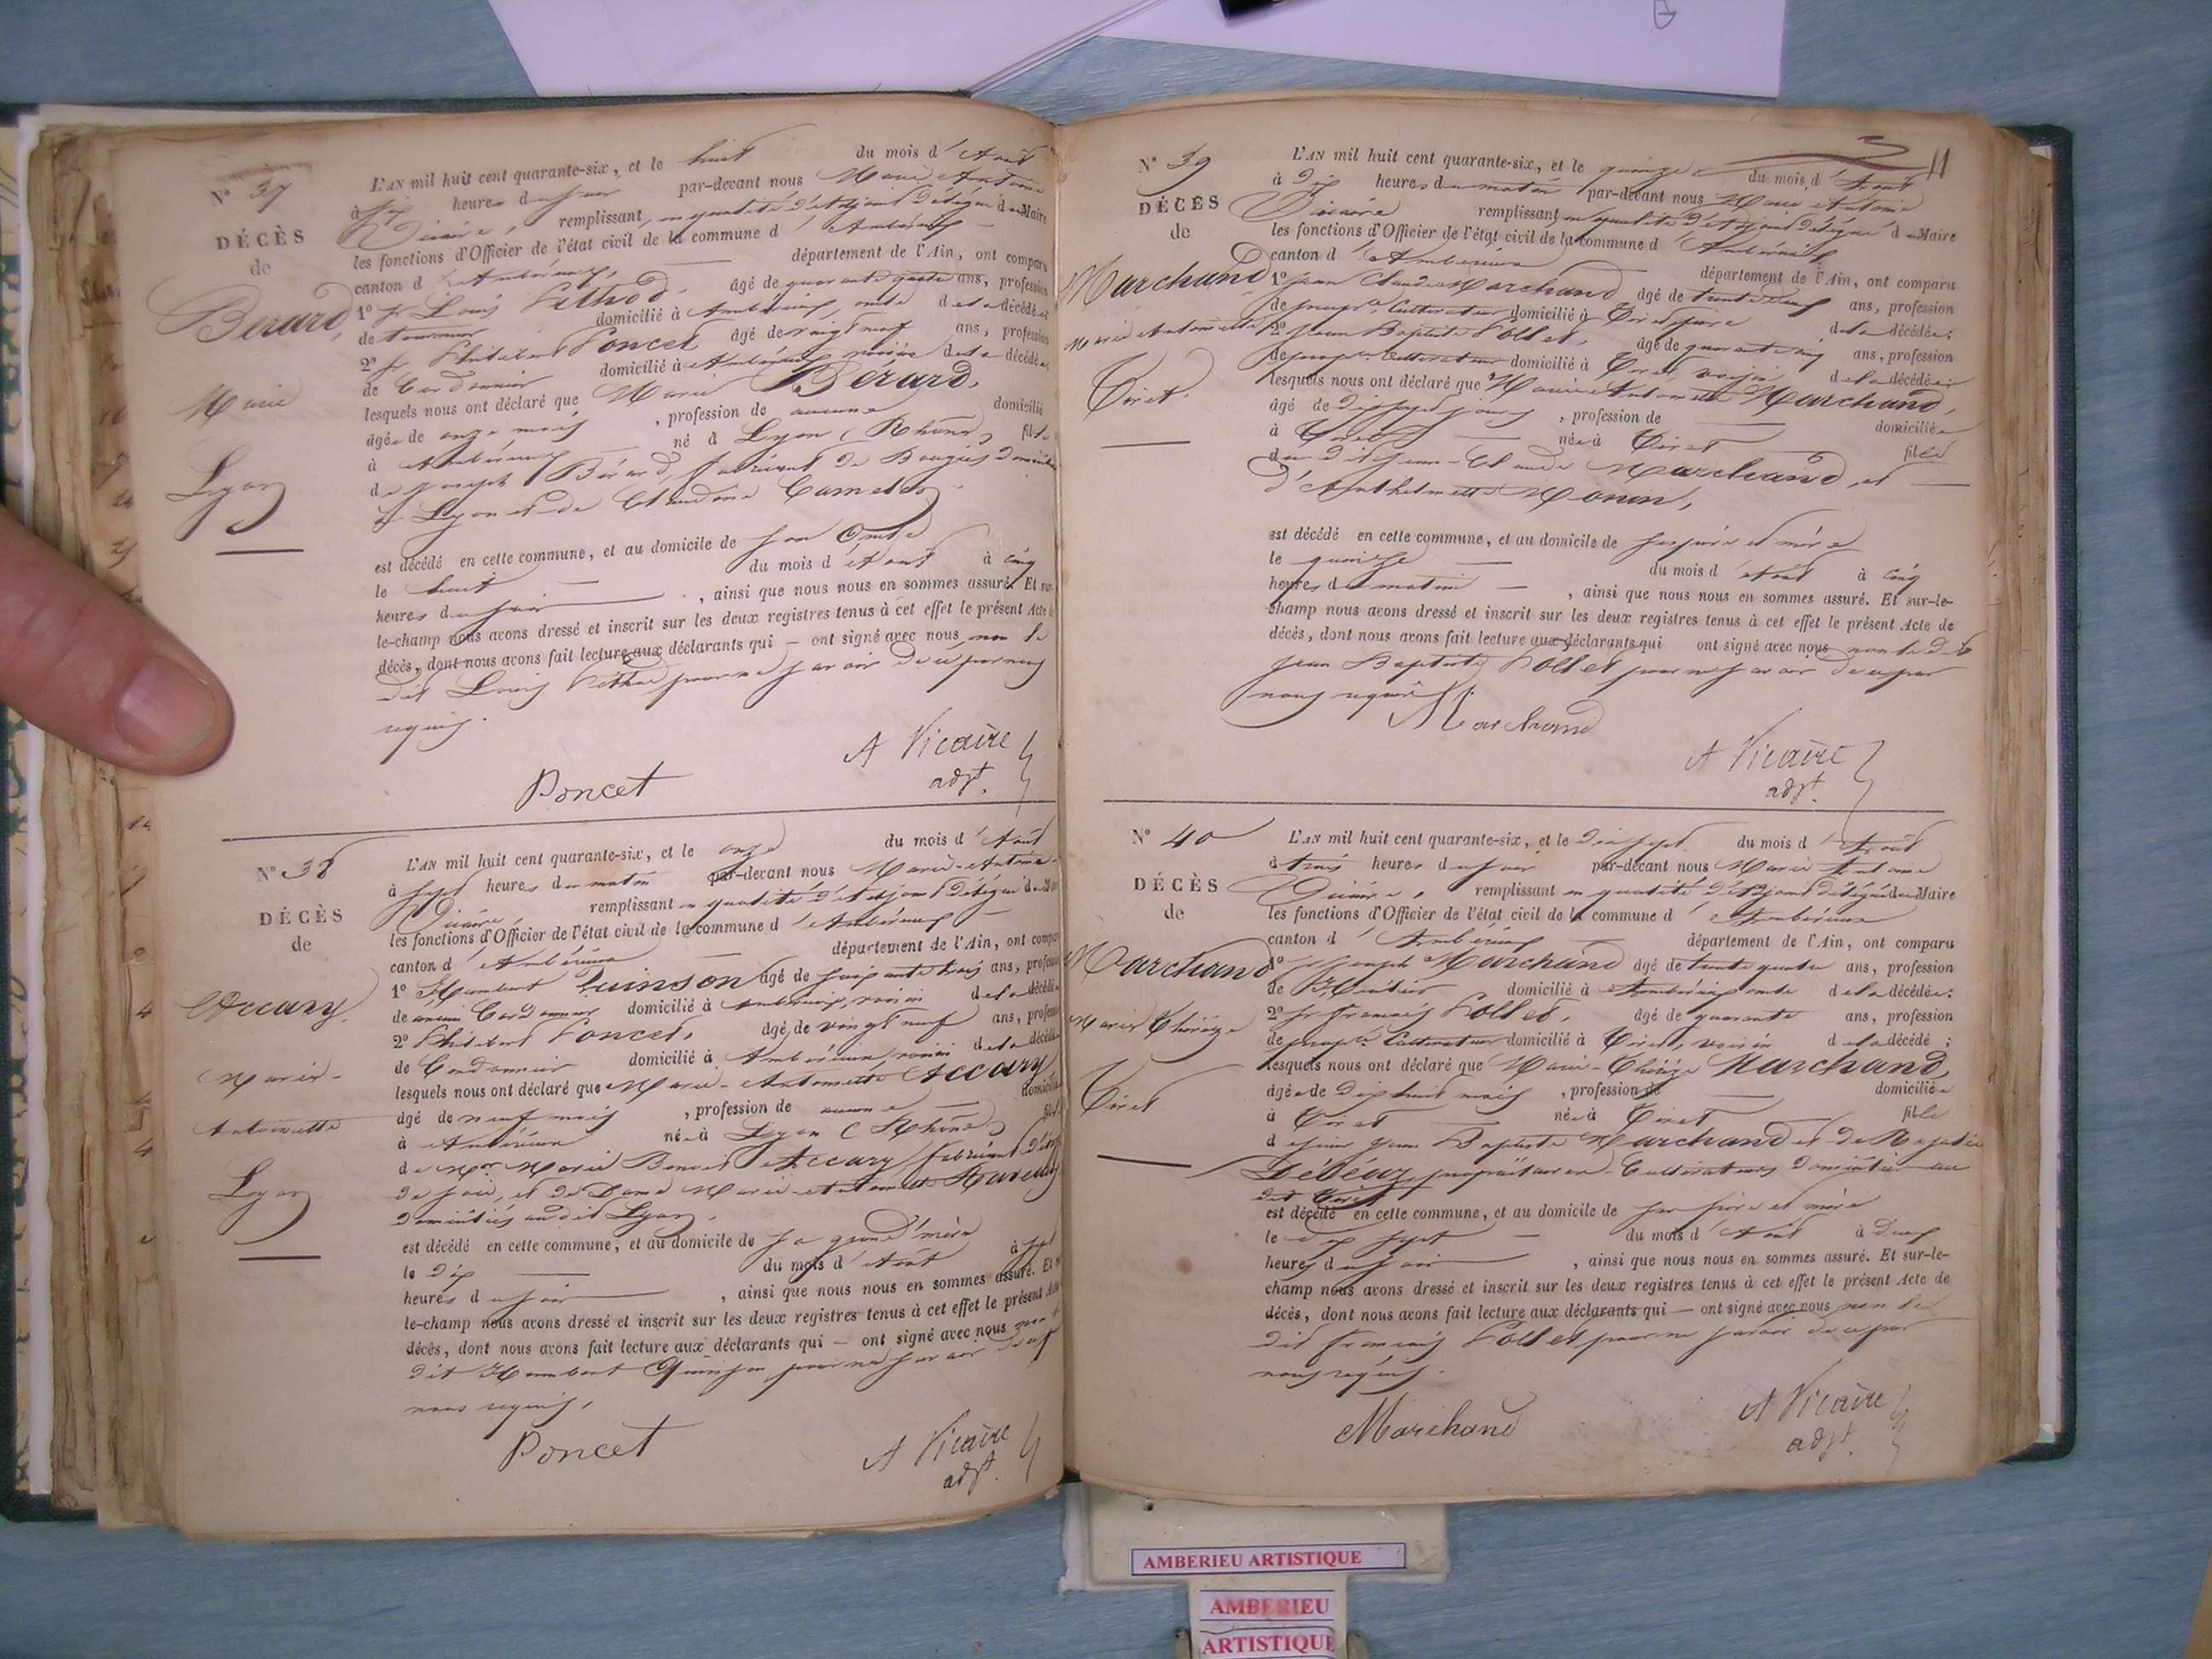 N° 37
DÉCÈS
de
Berard,
Marie
Lyon
L'AN mil huit cent quarante-six, et le huit du mois d'Août
à six heures du soir par-devant nous Marie Antoine
Vicaire, remplissant, en qualité d'Adjoint délégué du Maire
les fonctions d'Officier de l'état civil de la commune d'Ambérieux
canton d'Ambérieux, département de l'Ain, ont comparu
1° Sr Louis Pithod, âgé de quarante quatre ans, profession
de domicilié à Ambérieux, de la décédée
2° Sr Philibert Poncet âgé de vingt neuf ans, profession
de Cordonnier domicilié à Ambérieux voisin de la décédée
lesquels nous ont déclaré que Marie Bérard,
âgée de onze mois, profession de aucune domicilié
à Ambérieux né à Lyon (Rhône) fille
de Joseph Bérard, fabricant de Bougies domicilié
à Lyon et de Claudine
est décédé en cette commune, et au domicile de son
le huit du mois d'Août à cinq
heures du soir, ainsi que nous nous en sommes assuré. Et sur-
le-champ nous avons dressé et inscrit sur les deux registres tenus à cet effet le présent Acte de
décès, dont nous avons fait lecture aux déclarants qui — ont signé avec nous non le
dit Louis Pithod pour ne savoir de ce par nous
requis.
Poncet
A Vicaire
adjt.
N° 38
DÉCÈS
de
Accary.
Marie-
Antoinette
Lyon
L'AN mil huit cent quarante-six, et le onze du mois d'Août
à sept heures du matin par-devant nous Marie-Antoine
Vicaire remplissant en qualité d'Adjoint délégué du Maire
les fonctions d'Officier de l'état civil de la commune d'Ambérieux
canton d'Ambérieux département de l'Ain, ont comparu
1° Humbert Quinson âgé de soixante trois ans, profession
de ancien Cordonnier domicilié à Ambérieux, voisin de la décédée
2° Philibert Poncet, âgé de vingt neuf ans, profession
de Cordonnier domicilié à Ambérieux, voisin de la décédée
lesquels nous ont déclaré que Marie-Antoinette Accary
âgé de neuf mois, profession de aucune domicilié
à Ambérieux née à Lyon (Rhône) fille
de Mr Marie Benoit Accary, fabricant
de soie, et de Dame Marie-Antoinette
domiciliés audit Lyon.
est décédé en cette commune, et au domicile de sa grand'mère
le dix du mois d'Août à sept
heures du soir, ainsi que nous nous en sommes assuré. Et
le-champ nous avons dressé et inscrit sur les deux registres tenus à cet effet le présent Acte
décès, dont nous avons fait lecture aux déclarants qui — ont signé avec nous non le
dit Humbert Quinson pour ne savoir de ce par
nous requis,
Poncet
A Vicaire
adjt.
11
N° 39
DÉCÈS
de
Marchand
Marie Antoinette
Tiret.
L'AN mil huit cent quarante-six, et le quinze du mois d'Août
à dix heures du matin par-devant nous Marie Antoine
Vicaire remplissant en qualité d'Adjoint délégué du Maire
les fonctions d'Officier de l'état civil de la commune d'Ambérieux
canton d'Ambérieux département de l'Ain, ont comparu
1° Jean Claude Marchand âgé de trente neuf ans, profession
de propre Cultivateur domicilié à Tiret, père de la décédée;
2° Jean Baptiste Pollet, âgé de quarante cinq ans, profession
de propre Cultivateur domicilié à Tiret voisin de la décédée;
lesquels nous ont déclaré que Marie Antoinette Marchand,
âgé de dix sept jours, profession de domiciliée
à Tiret née à Tiret fille
du dit Jean-Claude Marchand, et
d'Anthelmette Monin,
est décédé en cette commune, et au domicile de ses père et mère
le quinze du mois d'Août à cinq
heures du matin, ainsi que nous nous en sommes assuré. Et sur-le-
champ nous avons dressé et inscrit sur les deux registres tenus à cet effet le présent Acte de
décès, dont nous avons fait lecture aux déclarants qui ont signé avec nous non le dit
Jean Baptiste Pollet pour ne savoir de ce par
nous requis.
Marchand
A Vicaire
adjt.
N° 40
DÉCÈS
de
Marchand
Marie Thérèze
Tiret
L'AN mil huit cent quarante-six, et le dix sept du mois d'Août
à trois heures du soir par-devant nous Marie Antoine
Vicaire, remplissant en qualité d'Adjoint délégué du Maire
les fonctions d'Officier de l'état civil de la commune d'Ambérieux
canton d'Ambérieux département de l'Ain, ont comparu
1° Sr Joseph Marchand âgé de trente quatre ans, profession
de domicilié à Ambérieux oncle de la décédée;
2° Sr François Pollet, âgé de quarante ans, profession
de propre Cultivateur domicilié à Tiret, voisin de la décédé;
lesquels nous ont déclaré que Marie-Thérèze Marchand,
âgée de dix huit mois, profession de domiciliée
à Tiret née à Tiret fille
de Jean Baptiste Marchand et de
propriétaires-Cultivateurs domiciliés au
dit Tiret
est décédé en cette commune, et au domicile de ses père et mère
le dix sept du mois d'Août à deux
heures du soir, ainsi que nous nous en sommes assuré. Et sur-le-
champ nous avons dressé et inscrit sur les deux registres tenus à cet effet le présent Acte de
décès, dont nous avons fait lecture aux déclarants qui — ont signé avec nous non le
dit François Pollet pour ne savoir de ce par
nous requis.
Marchand
A Vicaire
adjt.
AMBERIEU ARTISTIQUE
AMBERIEU
ARTISTIQUE